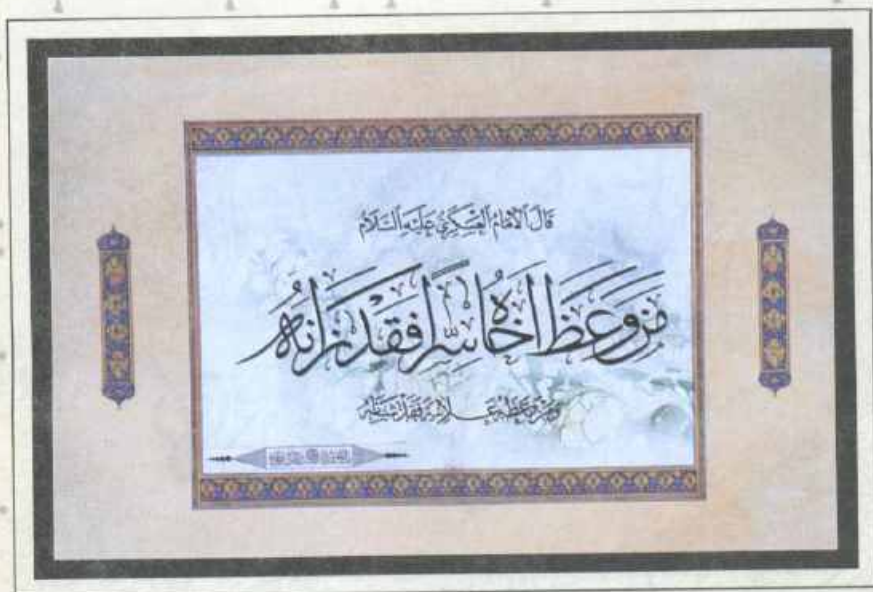 قَالَ الْاِمَامُ الْعَسْكَرِيُّ عَلَيْهِ السَّلَامُ
مَنْ وَعَظَ اَخَاهُ سِرًّا فَقَدْ زَانَهُ
وَمَنْ وَعَظَهُ عَلَانِيَةً فَقَدْ شَانَهُ